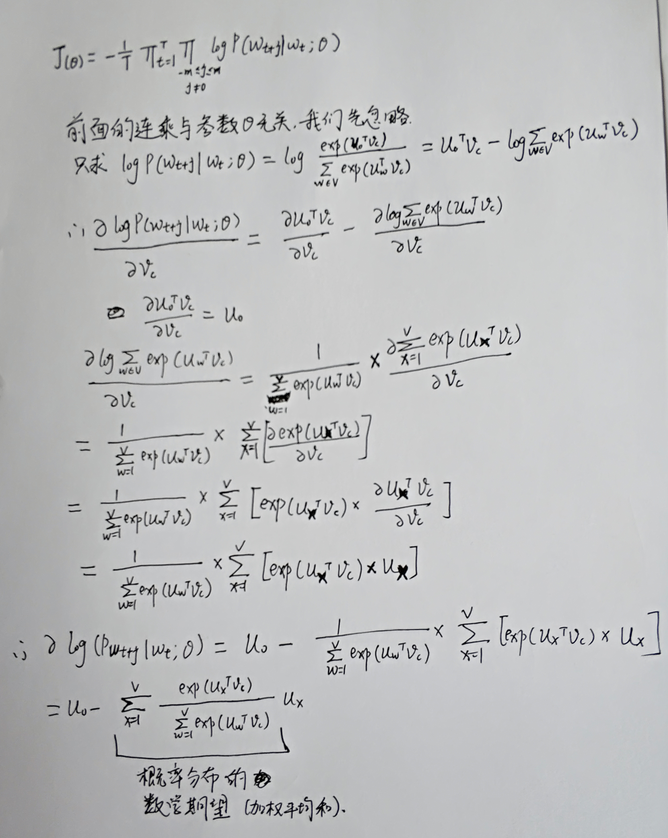 J(θ) = -1/T ∏_{t=1}^{T} ∏_{-m≤j≤m, j≠0} log P(w_{t+j}|w_t;θ)
前面的连乘与参数θ无关,我们先忽略
只求 log P(w_{t+j}|w_t;θ) = log exp(u_o^T v_c) / ∑_{w∈V} exp(u_w^T v_c) = u_o^T v_c - log ∑_{w∈V} exp(u_w^T v_c)
∴ ∂ log P(w_{t+j}|w_t;θ) / ∂v_c = ∂u_o^T v_c / ∂v_c - ∂ log ∑_{w∈V} exp(u_w^T v_c) / ∂v_c
∂u_o^T v_c / ∂v_c = u_o
∂ log ∑_{w∈V} exp(u_w^T v_c) / ∂v_c = 1 / ∑_{w=1}^{V} exp(u_w^T v_c) × ∂ ∑_{x=1}^{V} exp(u_x^T v_c) / ∂v_c
= 1 / ∑_{w=1}^{V} exp(u_w^T v_c) × ∑_{x=1}^{V} [∂exp(u_x^T v_c) / ∂v_c]
= 1 / ∑_{w=1}^{V} exp(u_w^T v_c) × ∑_{x=1}^{V} [exp(u_x^T v_c) × ∂u_x^T v_c / ∂v_c]
= 1 / ∑_{w=1}^{V} exp(u_w^T v_c) × ∑_{x=1}^{V} [exp(u_x^T v_c) × u_x]
∴ ∂ log(P w_{t+j}|w_t;θ) = u_o - 1 / ∑_{w=1}^{V} exp(u_w^T v_c) × ∑_{x=1}^{V} [exp(u_x^T v_c) × u_x]
= u_o - ∑_{x=1}^{V} exp(u_x^T v_c) / ∑_{w=1}^{V} exp(u_w^T v_c) u_x
概率分布的
数学期望(加权平均和).